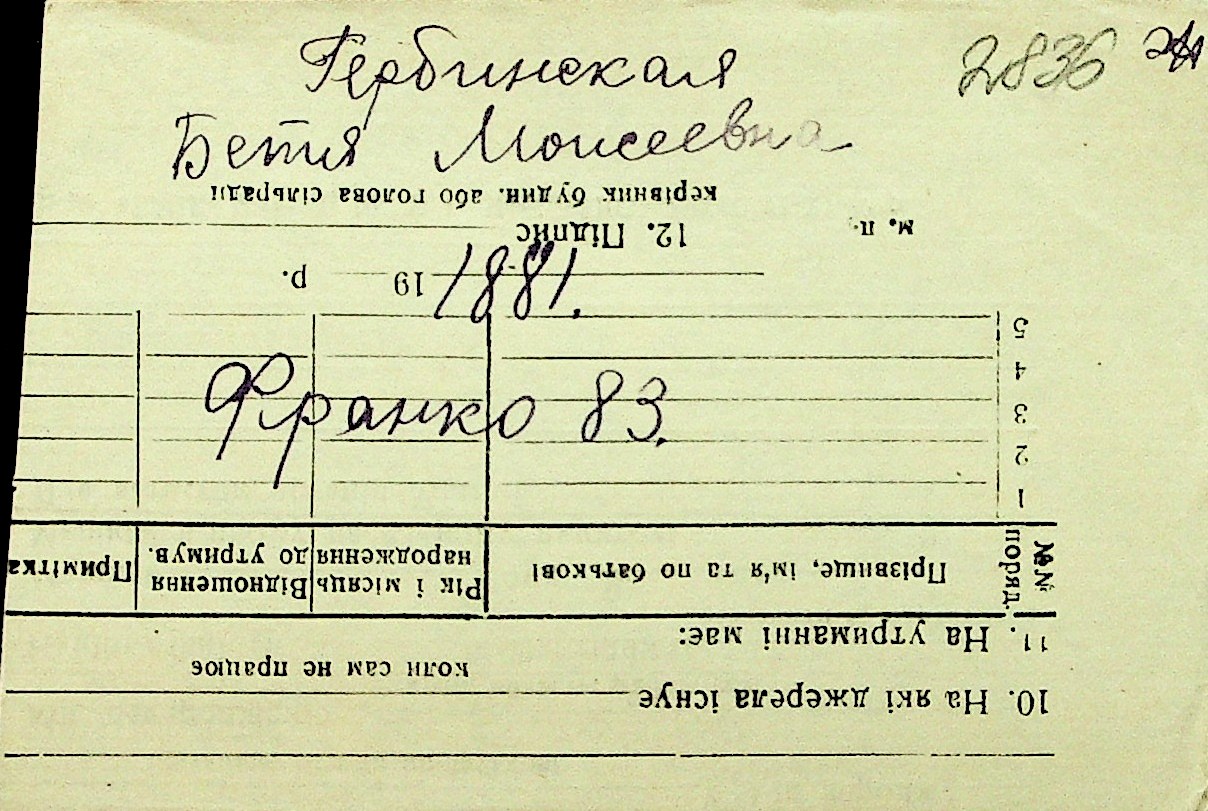 2836
Гербинская
Бетя Моисеевна
1881.
Франко 83.
10. На які джерела існує
коли сам не працює
11. На утриманні має:
№№ поряд.
Прізвище, ім'я та по батькові
Рік і місяць народження
Відношення до утримув.
Примітка
1
2
3
4
5
19 р.
м. п.
12. Підпис
керівник будин. або голова сільради